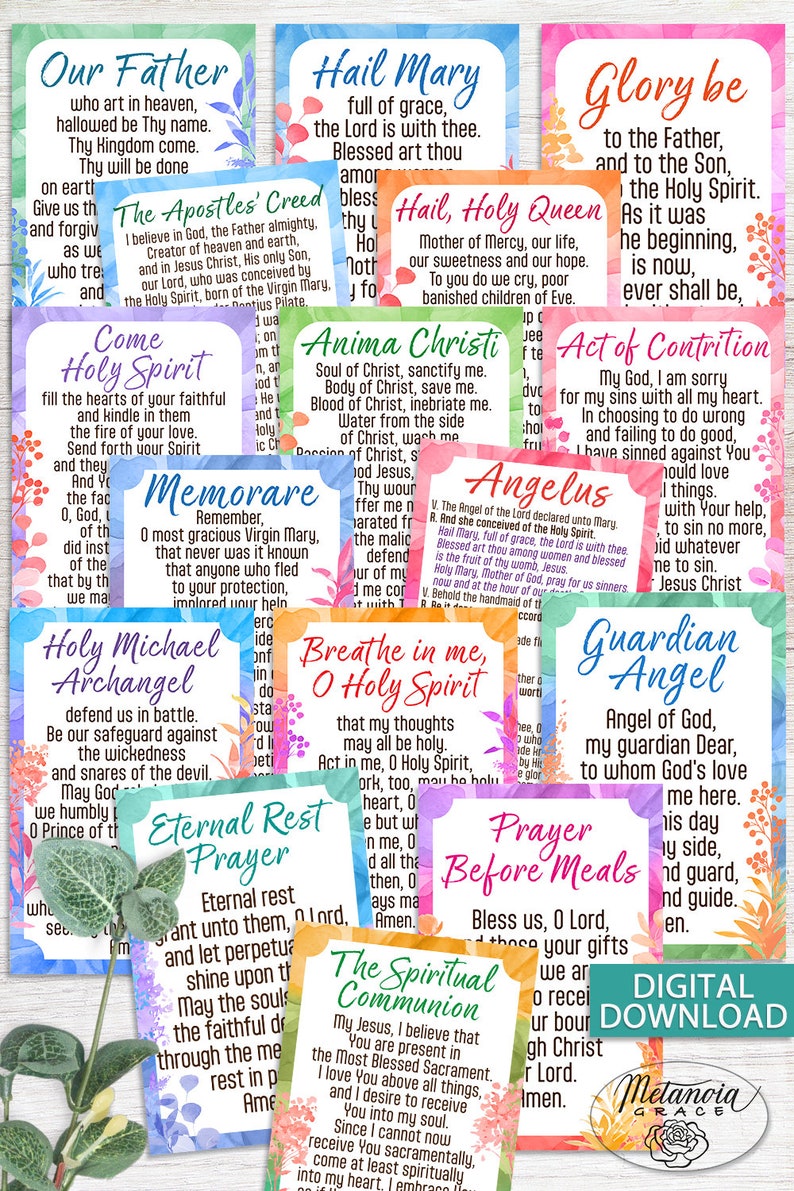 Our Father
who art in heaven,
hallowed be Thy name.
Thy Kingdom come.
Thy will be done
on earth
Give us th
and forgive
as we
who tres
and
Hail Mary
full of grace,
the Lord is with thee.
Blessed art thou
among women
bless
thy
H
Mot
pray
Glory be
to the Father,
and to the Son,
to the Holy Spirit.
As it was
he beginning,
is now,
ever shall be,
The Apostles' Creed
I believe in God, the Father almighty,
Creator of heaven and earth,
and in Jesus Christ, His only Son,
our Lord, who was conceived by
the Holy Spirit, born of the Virgin Mary,
Pontius Pilate,
Hail, Holy Queen
Mother of Mercy, our life,
our sweetness and our hope.
To you do we cry, poor
banished children of Eve.
Come
Holy Spirit
fill the hearts of your faithful
and kindle in them
the fire of your love.
Send forth your Spirit
and they
And Yo
the fac
O, God,
of th
did inst
of the
that by th
we ma
Anima Christi
Soul of Christ, sanctify me.
Body of Christ, save me.
Blood of Christ, inebriate me.
Water from the side
of Christ, wash me.
Passion of Christ, s
od Jesus,
Thy wou
ffer me n
parated fro
the malic
defend
our of my
Act of Contrition
My God, I am sorry
for my sins with all my heart.
In choosing to do wrong
and failing to do good,
I have sinned against You
ould love
l things.
with Your help,
, to sin no more,
oid whatever
me to sin.
r Jesus Christ
Memorare
Remember,
O most gracious Virgin Mary,
that never was it known
that anyone who fled
to your protection,
implored your help
Angelus
V. The Angel of the Lord declared unto Mary.
R. And she conceived of the Holy Spirit.
Hail Mary, full of grace, the Lord is with thee.
Blessed art thou among women and blessed
is the fruit of thy womb, Jesus.
Holy Mary, Mother of God, pray for us sinners,
now and at the hour of our death.
V. Behold the handmaid of th
R. Be it do
Holy Michael
Archangel
defend us in battle.
Be our safeguard against
the wickedness
and snares of the devil.
May God
we humbly p
O Prince of th
who
Am
Breathe in me,
O Holy Spirit
that my thoughts
may all be holy.
Act in me, O Holy Spirit,
ork, too, may be holy
heart, O
Amen.
Guardian
Angel
Angel of God,
my guardian Dear,
to whom God's love
me here.
his day
my side,
nd guard,
and guide.
en.
Eternal Rest
Prayer
Eternal rest
grant unto them, O Lord,
and let perpetu
shine upon th
May the souls
the faithful de
through the me
rest in p
Ame
Prayer
Before Meals
Bless us, O Lord,
and these your gifts
we are
to recei
our boun
gh Christ
r Lord.
men.
The Spiritual
Communion
My Jesus, I believe that
You are present in
the Most Blessed Sacrament.
I love You above all things,
and I desire to receive
You into my soul.
Since I cannot now
receive You sacramentally,
come at least spiritually
into my heart. I embrace You
DIGITAL
DOWNLOAD
Metanoia
GRACE